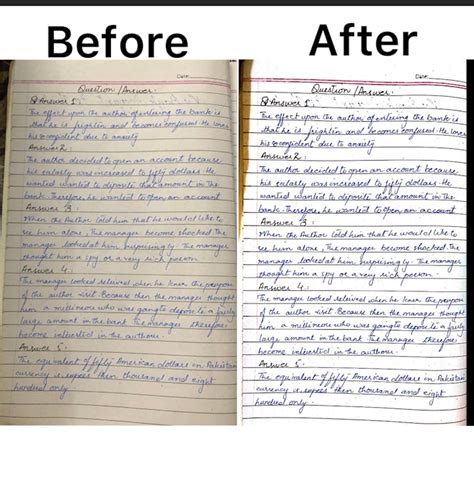 Before After
Date:
Question / Answer.
Answer 1:
The effect upon the author of entering the bank is
that he is frightin and becomes confused. He loses
his confident due to anxiety
Answer 2:
The author decided to open an account because
his salarly was increased to fifty dollars. He
wanted wanted to deposite that amount in the
bank. Therefore, he wanted to open an account
Answer 3:
When the Author told him that he would like to
see him alone, The manager become shocked. The
manager looked at him surprisingly. The manager
thought him a spy or a very rich person.
Answer 4:
The manager looked releived when he knew the
of the author visit. Because then the manager thought
him a who was going to a fairly
large amount in the bank. The manager therefore,
become interested in the authour.
Answer 5:
The equivalent of fifty American dollars in Pakistan
currency is rupees then thousand and eight
hundred only.
Date:
Question / Answer.
Answer 1:
The effect upon the author of entering the bank is
that he is frightin and becomes confused. He loses
his confident due to anxiety
Answer 2:
The author decided to open an account because
his salarly was increased to fifty dollars. He
wanted wanted to deposite that amount in the
bank. Therefore, he wanted to open an account
Answer 3:
When the Author told him that he would like to
see him alone, The manager become shocked. The
manager looked at him surprisingly. The manager
thought him a spy or a very rich person.
Answer 4:
The manager looked releived when he knew the
of the author visit. Because then the manager thought
him a who was going to a fairly
large amount in the bank. The manager therefore,
become interested in the authour.
Answer 5:
The equivalent of fifty American dollars in Pakistan
currency is rupees then thousand and eight
hundred only.